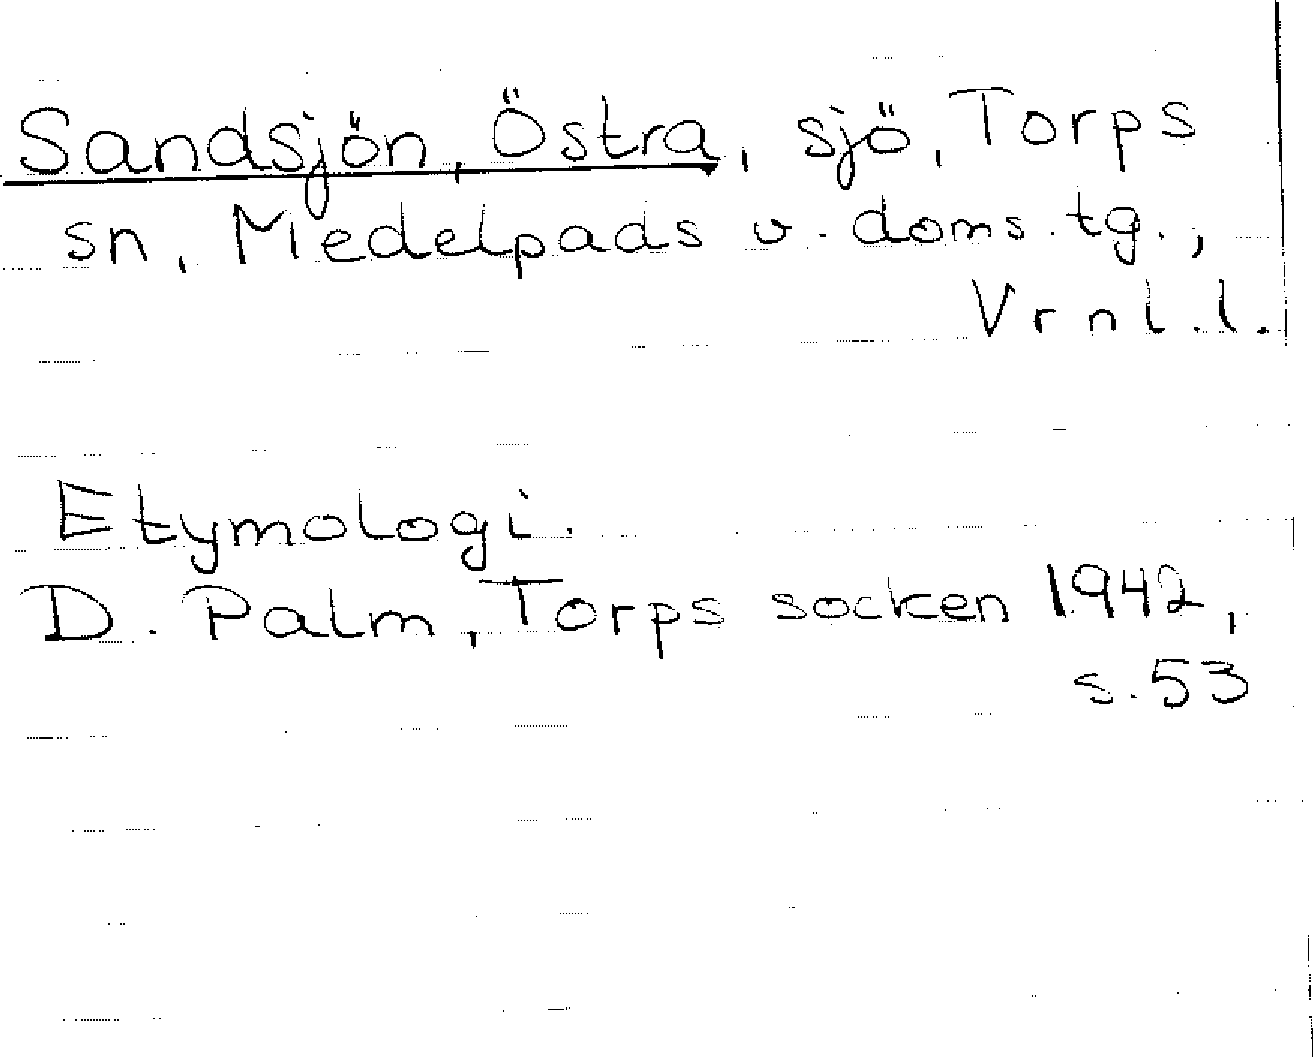 Sandsjön, Östra, sjö, Torps
sn, Medelpads v. doms.tg.,
Vrnl.l.
Etymologi.
D. Palm, Torps socken 1942,
s. 53